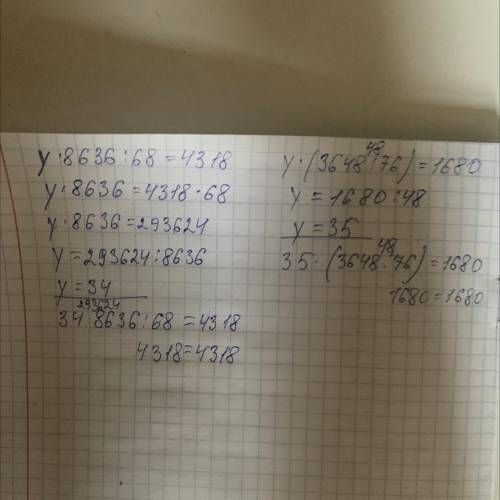 y·8636:68=4318
y·8636=4318·68
y·8636=293624
y=293624:8636
y=34
293624
34·8636:68=4318
4318=4318
48
y·(3648:76)=1680
y=1680:48
y=35
48
35·(3648:76)=1680
1680=1680